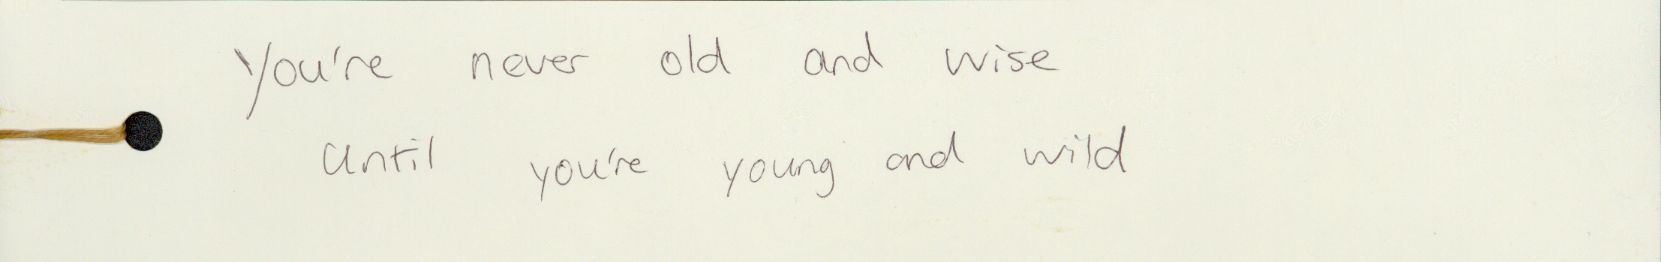 You're never old and wise
until you're young and wild